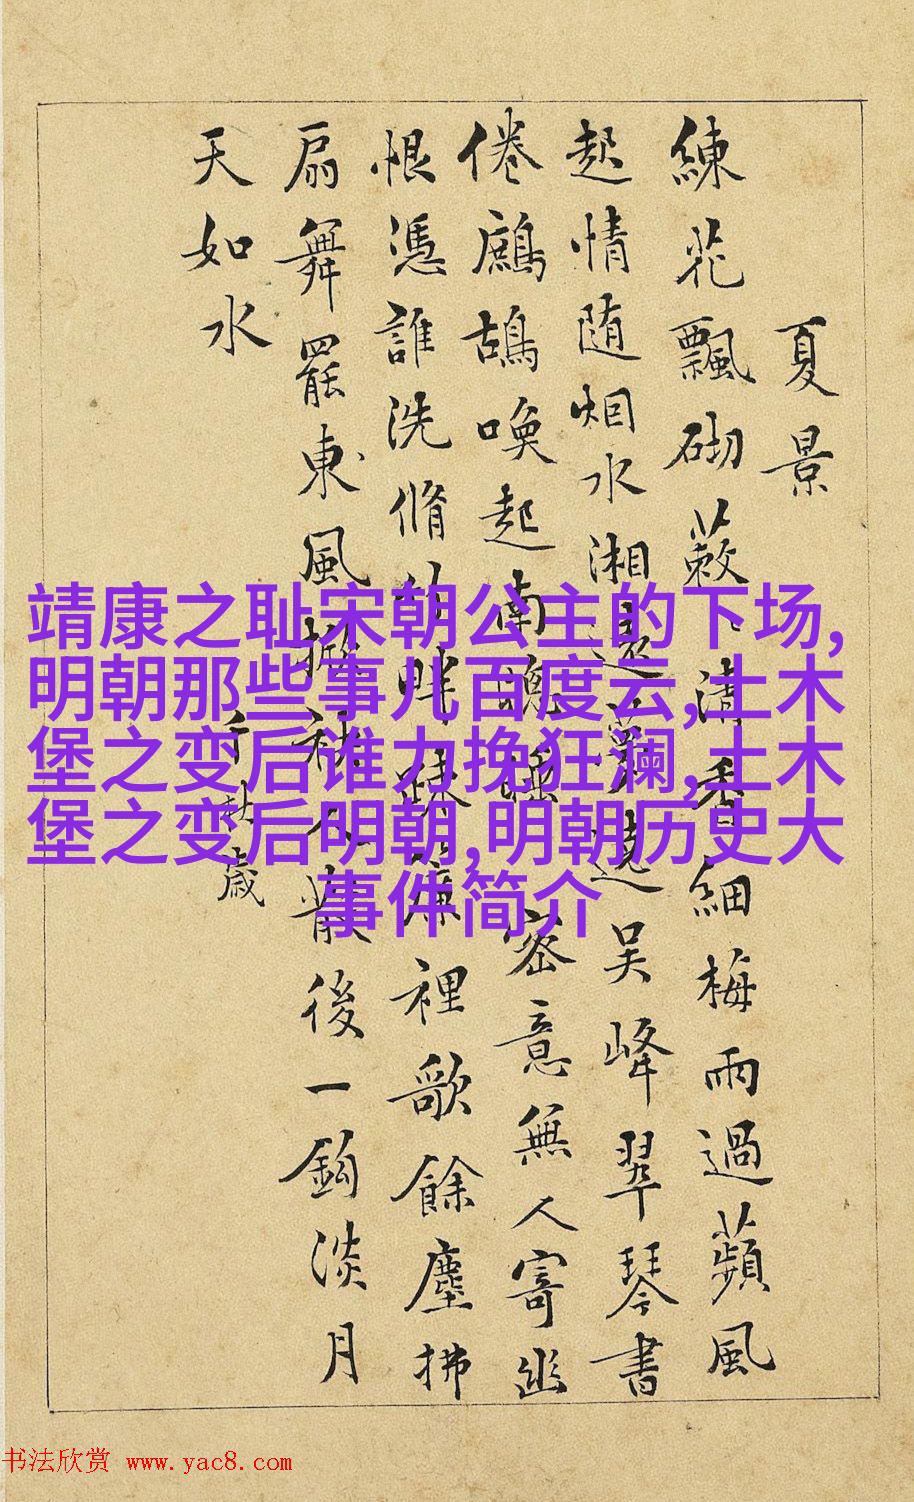 夏景
練花飄砌蔌〻清香細梅雨過蘋風
起情随烟水湘遠夢遶吴峰翠琴書
倦鷓鴣喚起南睡密意無人寄幽
恨憑誰洗脩竹畔疎簾裡歌餘塵拂
扇舞罷東風掀袂人散後一鈎淡月
天如水
千秋歲
靖康之耻宋朝公主的下场,
明朝那些事儿百度云,土木
堡之变后谁力挽狂澜,土木
堡之变后明朝,明朝历史大
事件简介
书法欣赏 www.yac8.com